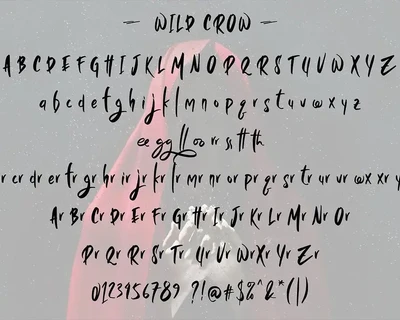 — WILD CROW —
A B C D E F G H I J K L M N O P Q R S T U V W X Y Z
a b c d e f g h i j k l m n o p q r s t u v w x y z
ee gg ll oo rr ss tt th
r cr dr er fr gr hr ir jr kr lr mr nr or pr qr sr tr ur vr wx xr y
Ar Br Cr Dr Er Fr Gr Hr Ir Jr Kr Lr Mr Nr Or
Pr Qr Rr Sr Tr Ur Vr WrXr Yr Zr
0123456789 ?!@#$%^&*(|)